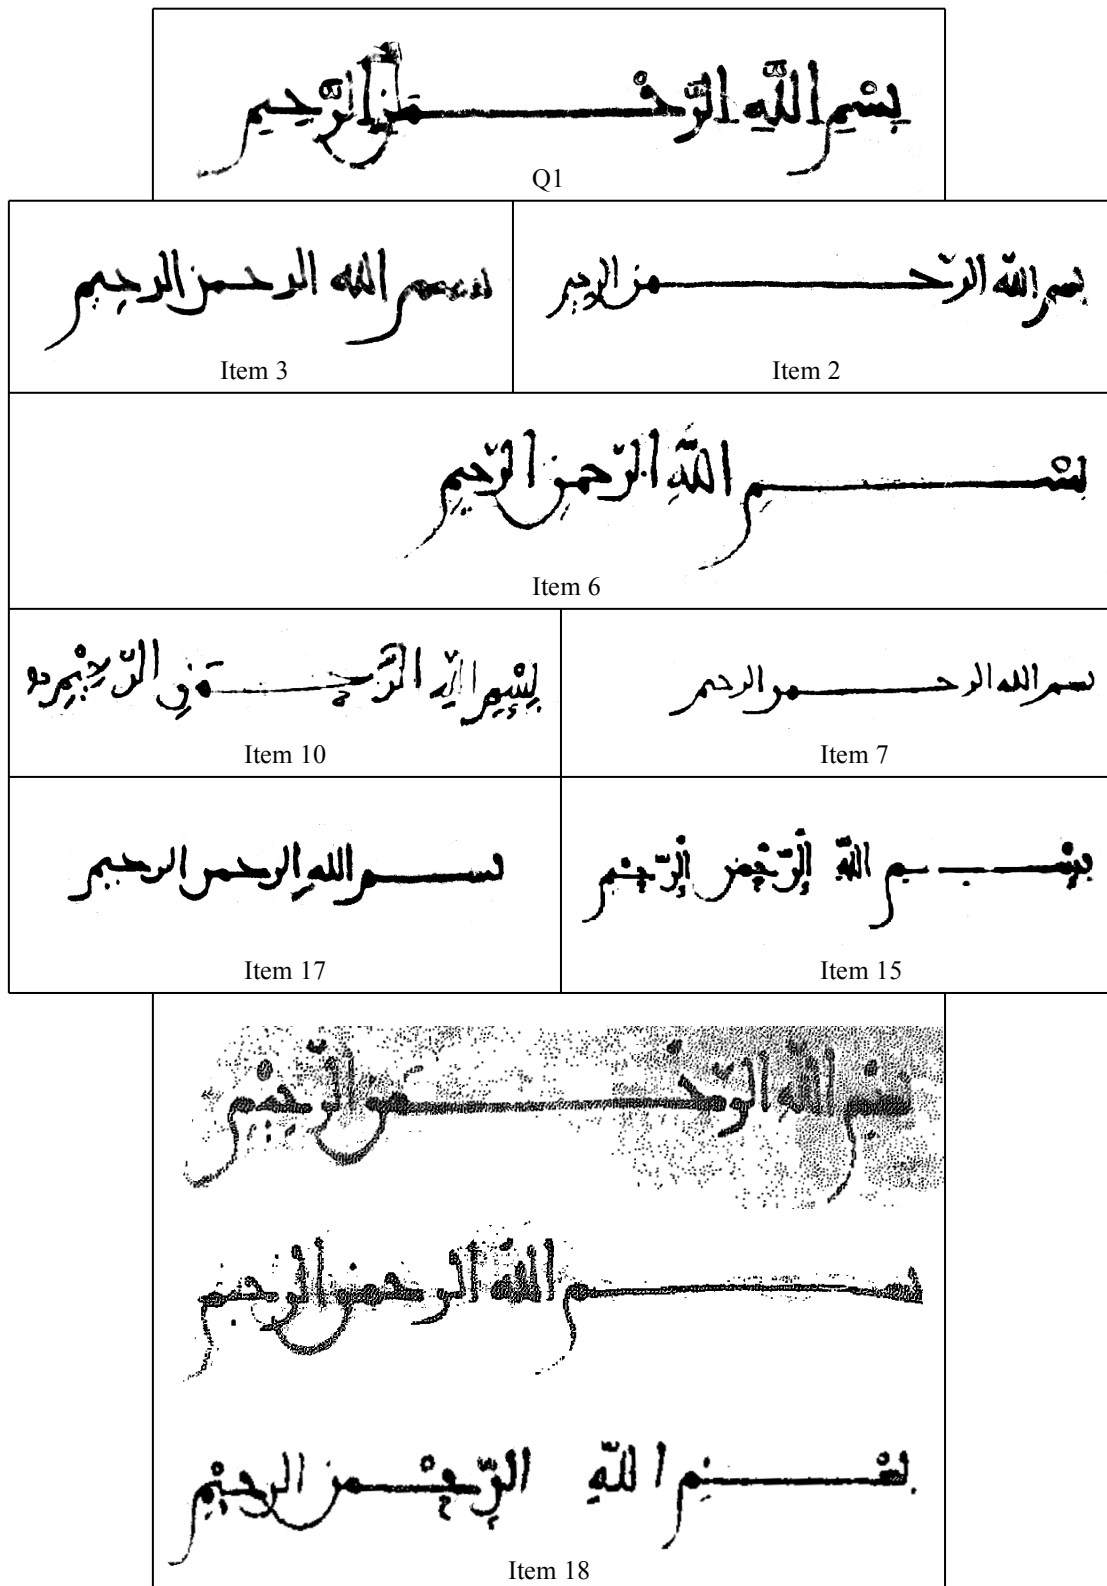 بِسْمِ اللَّهِ الرَّحْمَنِ الرَّحِيمِ
Q1
بسم الله الرحمن الرحيم
Item 3
بسم اللّه الرّحمن الرحيم
Item 2
بسْمِ اللَّهِ الرَّحمنِ الرَّحيمِ
Item 6
بِسْمِ اللَّهِ الرَّحمَنِ الرَّحِيْمِ
Item 10
بسم الله الرحمن الرحيم
Item 7
بسم اللهِ الرحمن الرحيم
Item 17
بِسْمِ اللَّهِ الرَّحْمن الرَّحِيْم
Item 15
بسْمِ اللَّهِ الرَّحْمن الرَّحِيْمِ
بسم اللّه الرحمن الرحيم
بسْمِ اللَّهِ الرَّحْمن الرحِيْمِ
Item 18